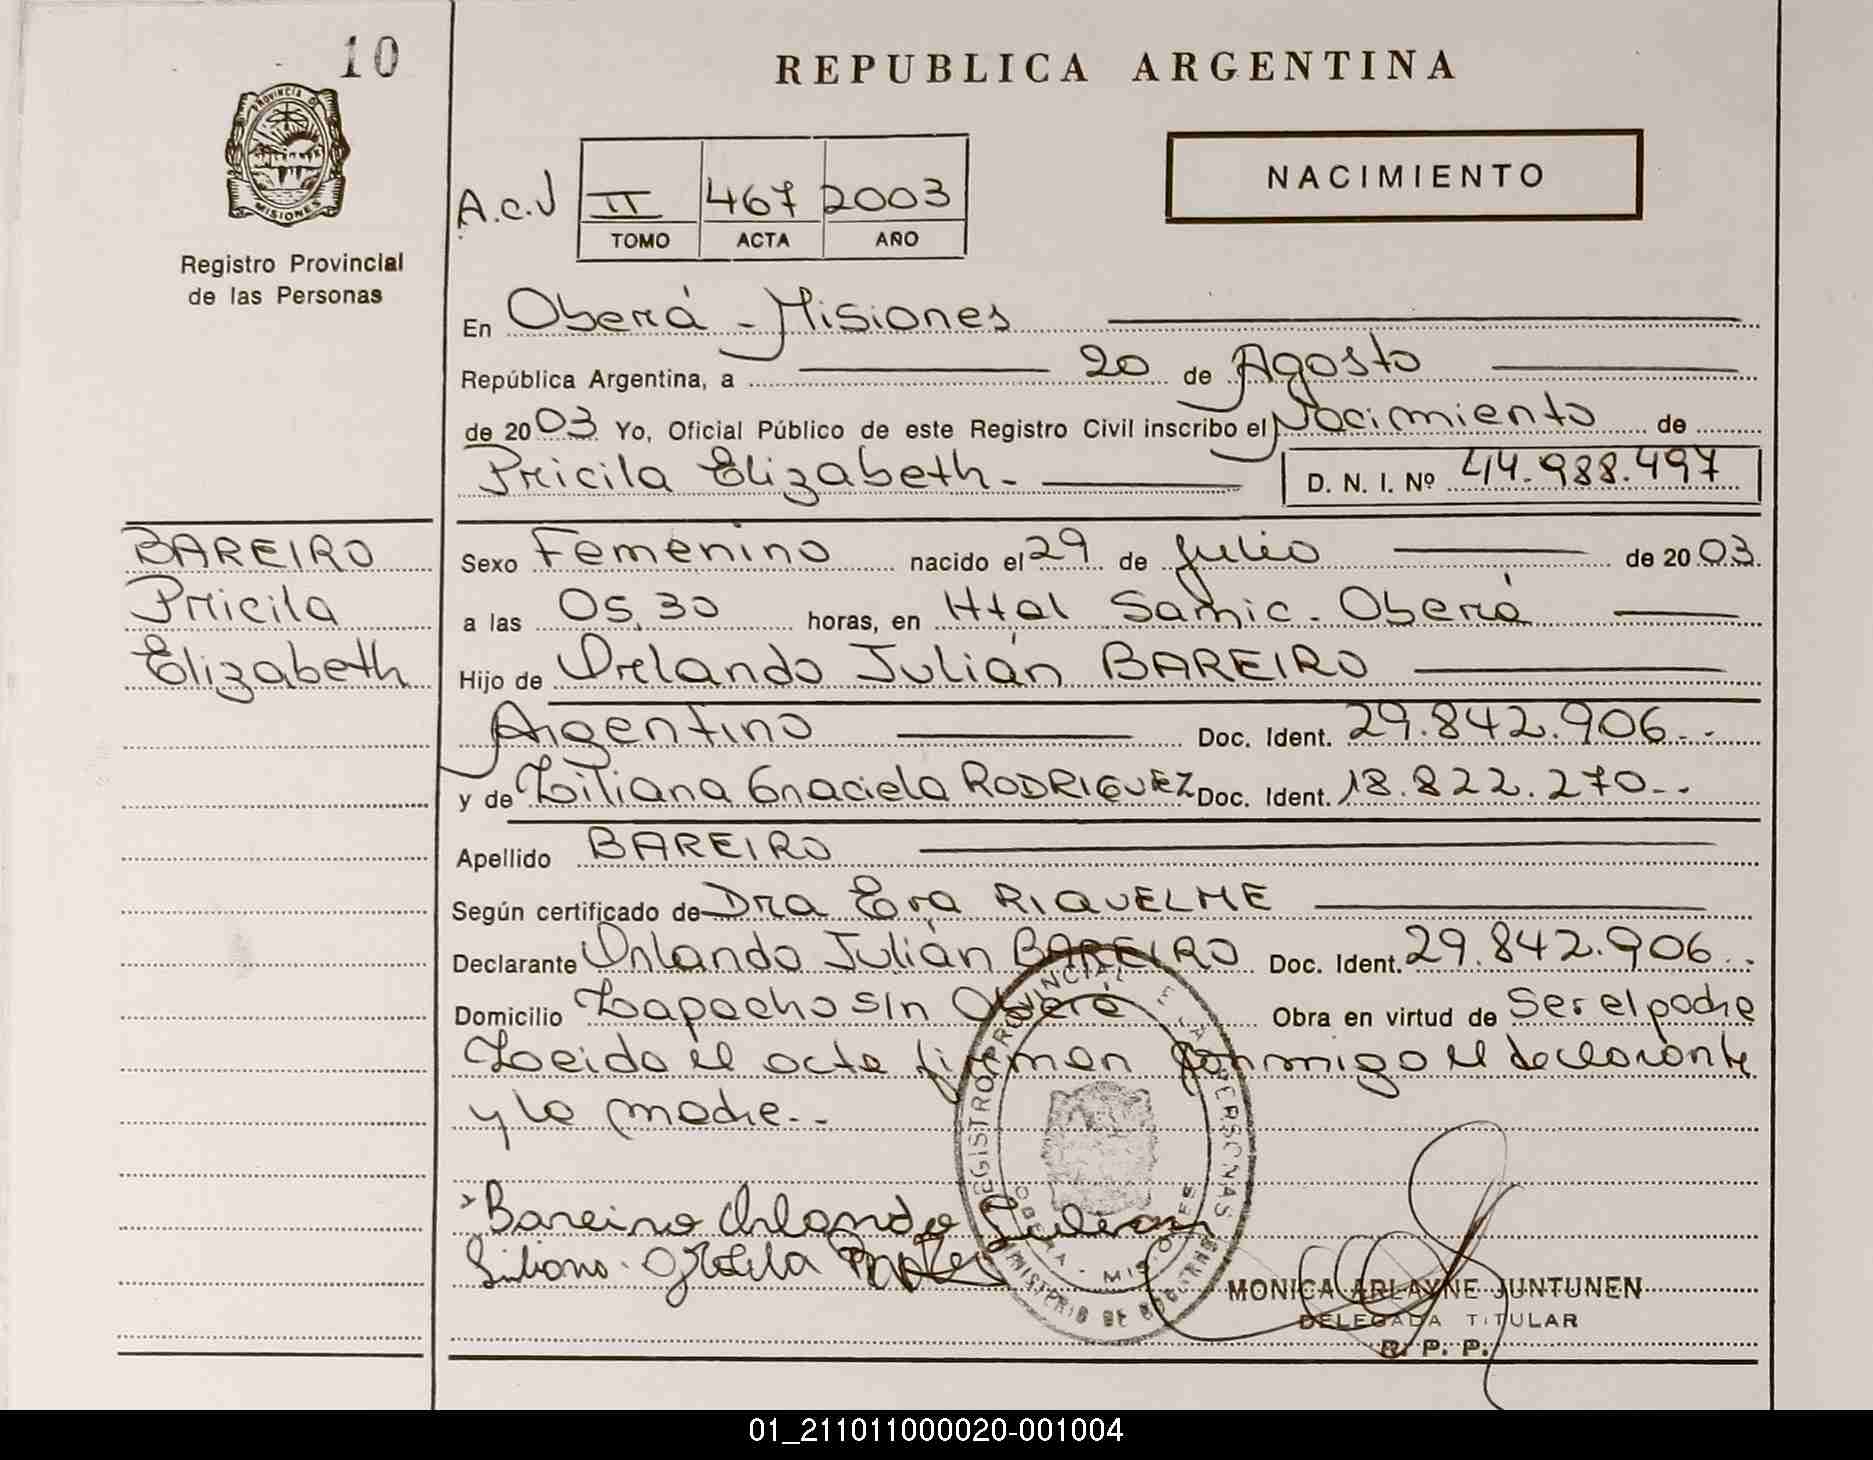 10
REPUBLICA ARGENTINA
PROVINCIA DE
MISIONES
Registro Provincial
de las Personas
A.C.V
II 467 2003
TOMO ACTA AÑO
NACIMIENTO
En Oberá - Misiones
República Argentina, a 20 de Agosto
de 2003 Yo, Oficial Público de este Registro Civil inscribo el Nacimiento de
Pricila Elizabeth.- D. N. I. Nº 44.988.497
BAREIRO
Pricila
Elizabeth
Sexo Femenino nacido el 29 de Julio de 2003.
a las 05,30 horas, en Htal Samic. Oberá
Hijo de Orlando Julián BAREIRO
Argentino Doc. Ident. 29.842.906.-.
y de Liliana Graciela RODRIGUEZ Doc. Ident. 18.822.270-.
Apellido BAREIRO
Según certificado de Dra Eva RIQUELME
Declarante Orlando Julián BAREIRO Doc. Ident. 29.842.906..
Domicilio Lapacho s/n Oberá Obra en virtud de Ser el padre
Leida el acta firman conmigo el declarante
y la madre.-
REGISTRO PROVINCIAL DE LAS PERSONAS
OBERA - MISIONES
MINISTERIO DE GOBIERNO
Bareiro Orlando Julian
Liliana Graciela
MONICA ARLAYNE JUNTUNEN
DELEGADA TITULAR
R. P. P.
01_211011000020-001004